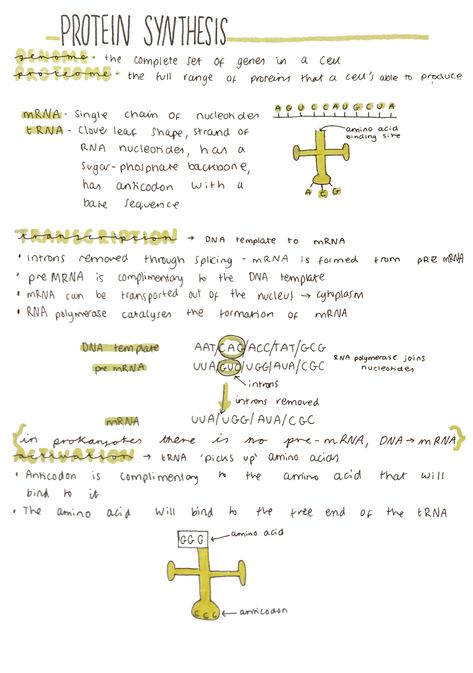 PROTEIN SYNTHESIS
genome - the complete set of genes in a cell
proteome - the full range of proteins that a cell's able to produce
mRNA - single chain of nucleotides
AGUCCAUGCUA
tRNA - Clove leaf shape, strand of
RNA nucleotides, has a
sugar-phosphate backbone,
has anticodon with a
base sequence
amino acid
binding site
A C G
transcription → DNA template to mRNA
• Introns removed through splicing - mRNA is formed from pre mRNA
• pre MRNA is complimentary to the DNA template
• mRNA can be transported out of the nucleus → cytoplasm
• RNA polymerase catalyses the formation of mRNA
DNA template AAT/CAG/ACC/TAT/GCG
pre mRNA UUA/GUC/UGG/AUA/CGC
RNA polymerase joins
nucleotides
introns
introns removed
mRNA UUA/UGG/AUA/CGC
{in prokaryotes there is no pre-mRNA, DNA→mRNA}
ACTIVATION → tRNA 'picks up' amino acids
• Anticodon is complimentary to the amino acid that will
bind to it
• The amino acid will bind to the free end of the tRNA
GGG ← amino acid
CCC ← anticodon